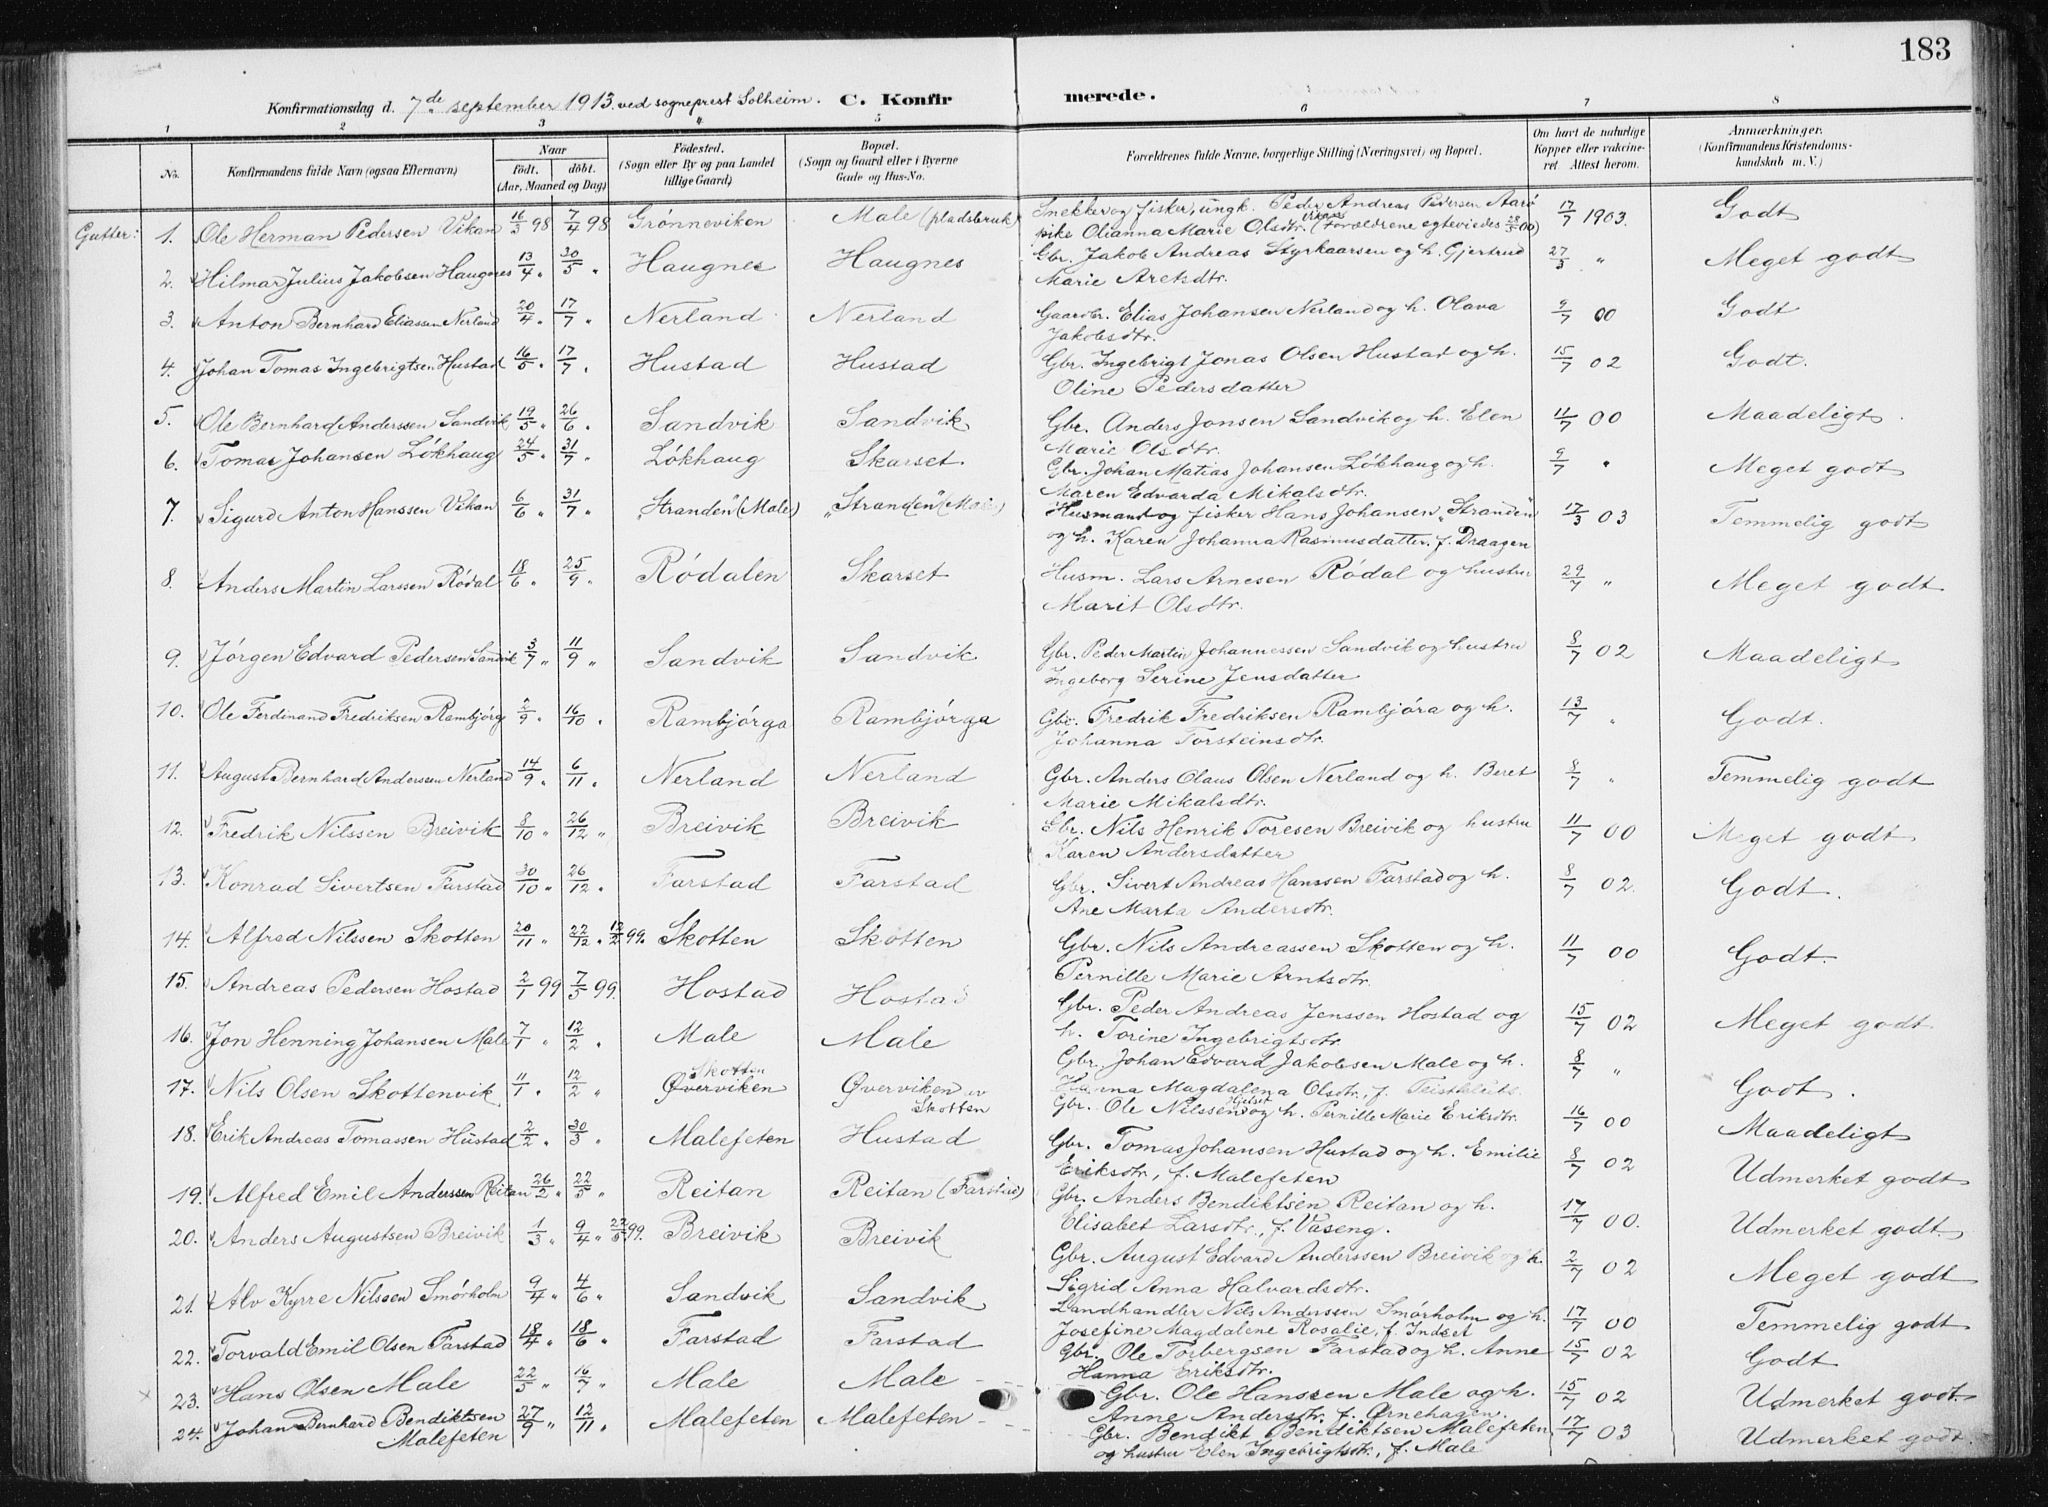 183
Konfirmationsdag d. 7de september 1913. ved sogneprest Solheim. C. Konfirmerede.
1 2 3 4 5 6 7 8
No. Konfirmandens fulde Navn (ogsaa Efternavn) Naar födt. döbt. (Aar, Maaned og Dag) Födested. (Sogn eller By og paa Landet tillige Gaard) Bopæl. (Sogn og Gaard eller i Byerne Gade og Hus-No. Forældrenes fulde Navne, borgerlige Stilling (Næringsvei) og Bopæl. Om havt de naturlige Kopper eller vaccineret. Attest herom. Anmærkninger. (Konfirmandens Kristendomskundskab m. V.)
Gutter:
1. Ole Herman Pedersen Vikan 16/3 98 7/4 98 Grønneviken Male (pladsbruk) Snekker og fisker, ungk. Peder Andreas Pedersen Aarø 17/7 1903. Godt
pike Olianna Marie Olsdtr. Vikan (Forældrene egteviedes 28/5 00)
2. Hilmar Julius Jakobsen Haugnes 13/4 " 30/5 " Haugnes Haugnes Gbr. Jakob Andreas Styrkaarsen og h. Gjertrud 27/3 " Meget godt
Marie Aretsdtr.
3. Anton Bernhard Eliassen Nerland 20/4 " 17/7 " Nerland Nerland Gaardbr. Elias Johansen Nerland og h. Olava 9/7 00 Godt
Jakobsdtr.
4. Johan Tomas Ingebrigtsen Hustad 16/5 " 17/7 " Hustad Hustad Gbr. Ingebrigt Jonas Olsen Hustad og h. 15/7 02 Godt.
Oline Pedersdatter
5. Ole Bernhard Anderssen Sandvik 19/5 " 26/6 " Sandvik Sandvik Gbr. Anders Jonsen Sandvik og h. Elen 11/7 00 Maadeligt.
Marie Olsdtr.
6. Tomas Johansen Lökhaug 24/5 " 31/7 " Lökhaug Skarset Gbr. Johan Matias Johansen Lökhaug og h. 9/7 " Meget godt
Maren Edvarda Mikalsdtr.
7. Sigurd Anton Hanssen Vikan 6/6 " 31/7 " "Stranden" (Male) "Stranden" (Male) Husmand og fisker Hans Johansen "Stranden" 17/3 03 Temmelig godt
og h. Karen Johanna Rasmusdatter, f. Draagen
8. Anders Martin Larssen Rödal 18/6 " 25/9 " Rödalen Skarset Husm. Lars Arnesen Rödal og hustru 29/7 " Meget godt
Marit Olsdtr.
9. Jörgen Edvard Pedersen Sandvik 3/7 " 11/9 " Sandvik Sandvik Gbr. Peder Martin Johannessen Sandvik og hustru 8/7 02 Maadeligt
Ingeborg Serine Jensdatter
10. Ole Ferdinand Fredriksen Rambjörg 2/9 " 16/10 " Rambjörga Rambjörga Gbr. Fredrik Fredriksen Rambjöra og h. 13/7 " Godt.
Johanna Torsteinsdtr.
11. August Bernhard Andersen Nerland 14/9 " 6/11 " Nerland Nerland Gbr. Anders Olaus Olsen Nerland og h. Beret 8/7 " Temmelig godt
Marie Mikalsdtr.
12. Fredrik Nilssen Breivik 8/10 " 26/12 " Breivik Breivik Gbr. Nils Henrik Toresen Breivik og hustru 11/7 00 Meget godt
Karen Andersdatter
13. Konrad Sivertsen Farstad 30/10 " 26/12 " Farstad Farstad Gbr. Sivert Andreas Hanssen Farstad og h. 8/7 02. Godt.
Ane Marta Andersdtr.
14. Alfred Nilssen Skotten 20/11 " 22/12 " 12/2 99. Skotten Skotten Gbr. Nils Andreassen Skotten og h. 11/7 00 Godt.
Pernille Marie Arntsdtr.
15. Andreas Pedersen Hostad 2/1 99 7/5 99. Hostad Hostad Gbr. Peder Andreas Jenssen Hostad og 15/7 02 Meget godt.
h. Torine Ingebrigtsdtr.
16. Jon Henning Johansen Male 7/1 " 12/2 " Male Male Gbr. Johan Edvard Jakobsen Male og h. 8/7 " Godt.
Hanna Magdalena Olsdtr., f.
17. Nils Olsen Skottenvik 11/1 " 12/2 " Skotten Øverviken Øverviken Skotten Gbr. Ole Nilssen og h. Pernille Marie Eriksdtr. 16/7 00 Maadeligt
18. Erik Andreas Tomassen Hustad 2/2 " 30/3 " Malefeten Hustad Gbr. Tomas Johansen Hustad og h. Emilie 8/7 02 Udmerket godt
Eriksdtr., f. Malefeten
19. Alfred Emil Anderssen Reitan 26/2 " 22/5 " Reitan Reitan (Farstad) Gbr. Anders Bendiktsen Reitan og h. 17/7 00. Udmerket godt.
Elisabet Larsdtr., f. Vaseng.
20. Anders Augustsen Breivik 1/3 " 9/4 " 22/5 99. Breivik Breivik Gbr. August Edvard Anderssen Breivik og h. 2/7 02 Meget godt
Sigrid Anna Halvardsdtr.
21. Alv Kyrre Nilssen Smörholm 9/4 " 4/6 " Sandvik Sandvik Landhandler Nils Anderssen Smörholm og h. 17/7 00 Temmelig godt
Josefine Magdalene Rosalie, f. Indset
22. Torvald Emil Olsen Farstad 18/4 " 18/6 " Farstad Farstad Gbr. Ole Torbergsen Farstad og h. Anne 15/7 02 Godt
Hanna Eriksdtr.
23. Hans Olsen Male 22/5 " 16/7 " Male Male Gbr. Ole Hanssen Male og h. 15/7 02 Udmerket godt.
Anne Andersdtr. f. Ørnehagen.
24. Johan Bernhard Bendiktsen 27/9 " 12/11 " Malefeten Malefeten Gbr. Bendikt Bendiktsen Malefeten 17/7 03 Udmerket godt.
Malefeten og hustru Elen Ingebrigtsdtr., f. Male